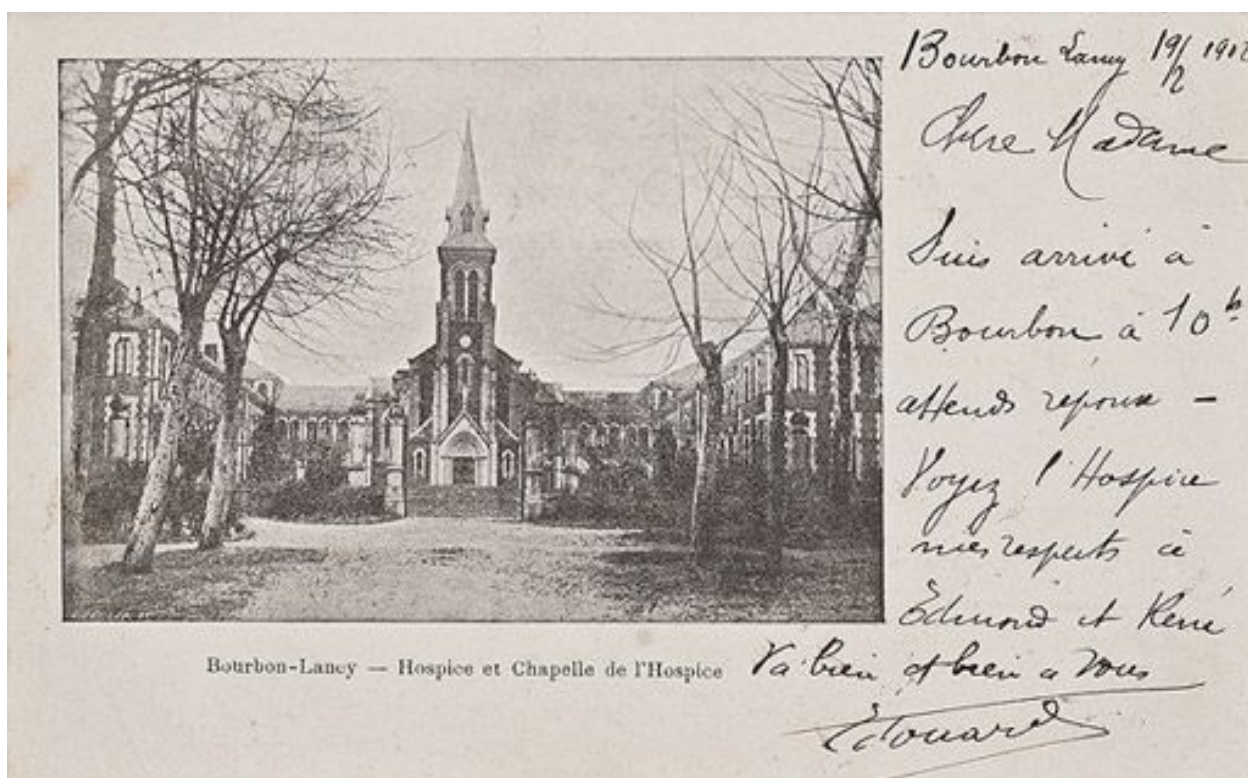 Bourbon Lancy 19/2
Chère Madame
Suis arrivé à
Bourbon à 10h
attends réponse –
Voyez l'Hospice
mes respects à
Edmond et René
Va bien et bien a vous
Edouard
Bourbon-Lancy — Hospice et Chapelle de l'Hospice